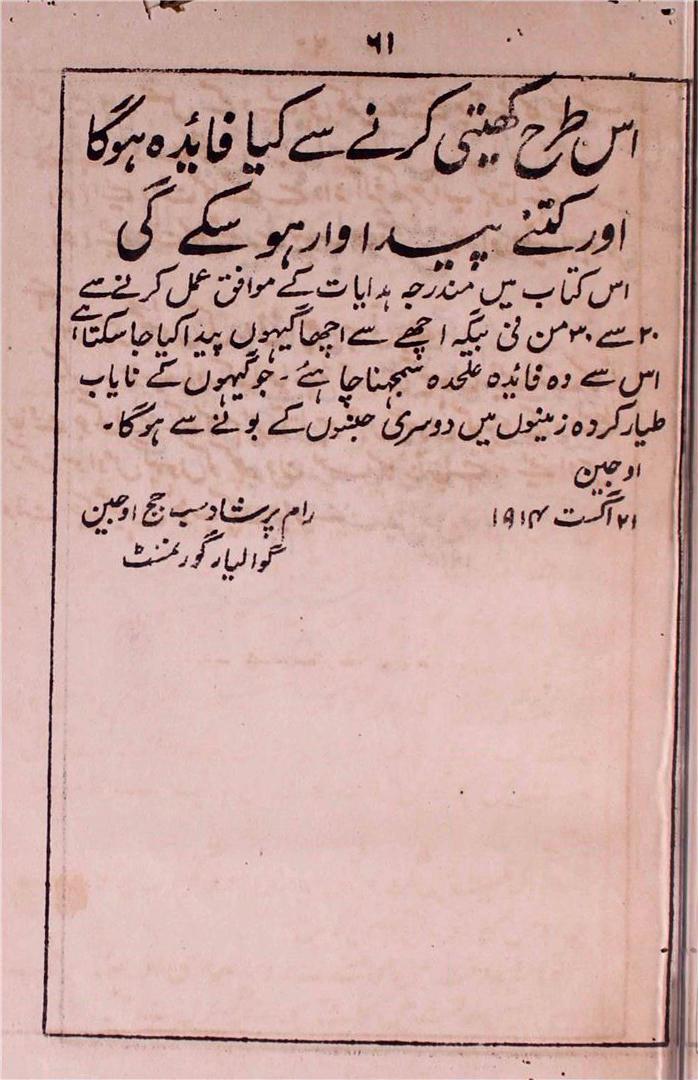 ۶۱
اس طرح کھیتی کرنے سے کیا فائدہ ہوگا
اور کتنے پیداوار ہو سکے گی
اس کتاب میں مندرجہ ہدایات کے موافق عمل کرنے سے
۲۰ سے ۳۰ من فی بیگہ اچھے سے اچھا گیہوں پیدا کیا جا سکتا ہے
اس سے وہ فائدہ علٰحدہ سمجہنا چاہئے۔ جو گیہوں کے نایاب
طیار کردہ زمینوں میں دوسری جنسوں کے بونے سے ہوگا۔
اوجین
۲۱ اگست ۱۹۱۴ رام پرشاد سب جج اوجین
گوالیار گورنمنٹ